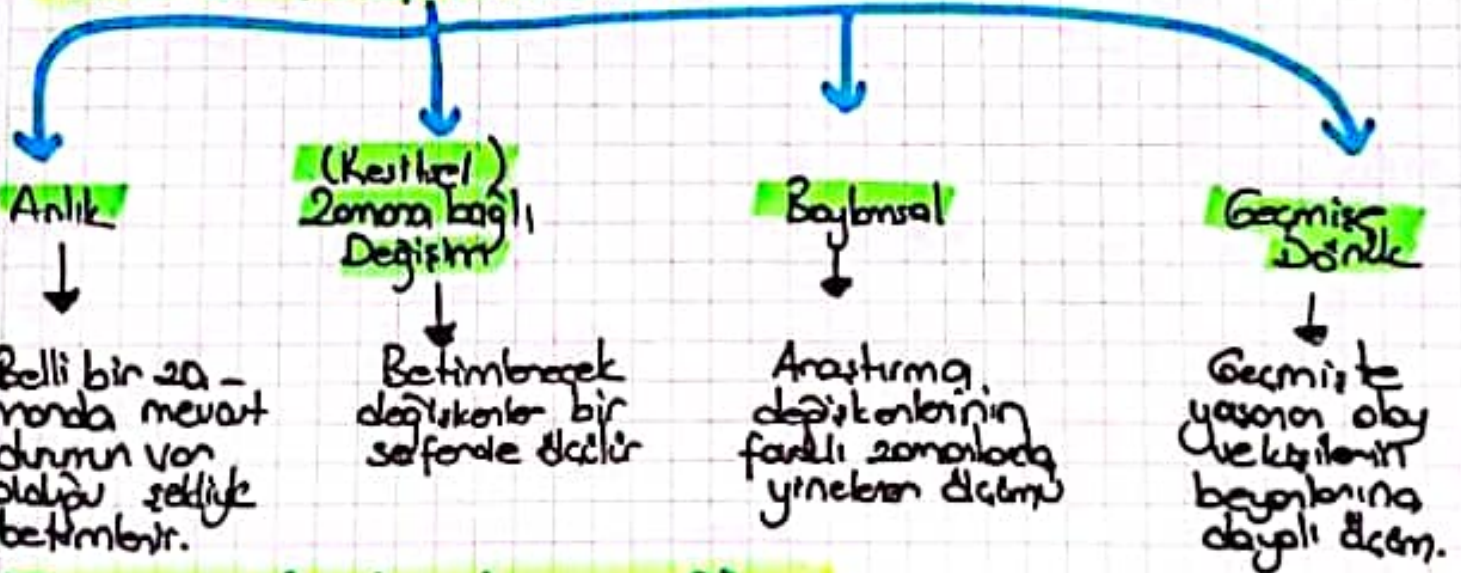 Anlık
Belli bir za-
manda mevcut
durumun var
olduğu şekliyle
betimlenir.
(Kesitsel)
Zamana bağlı
Değişim
Betimlenecek
değişkenler bir
seferde ölçülür
Boylamsal
Araştırma
değişkenlerinin
farklı zamanlarda
yinelenen ölçümü
Geçmişe
Dönük
Geçmişte
yaşanan olay
ve kişilerin
beyanlarına
dayalı ölçüm.